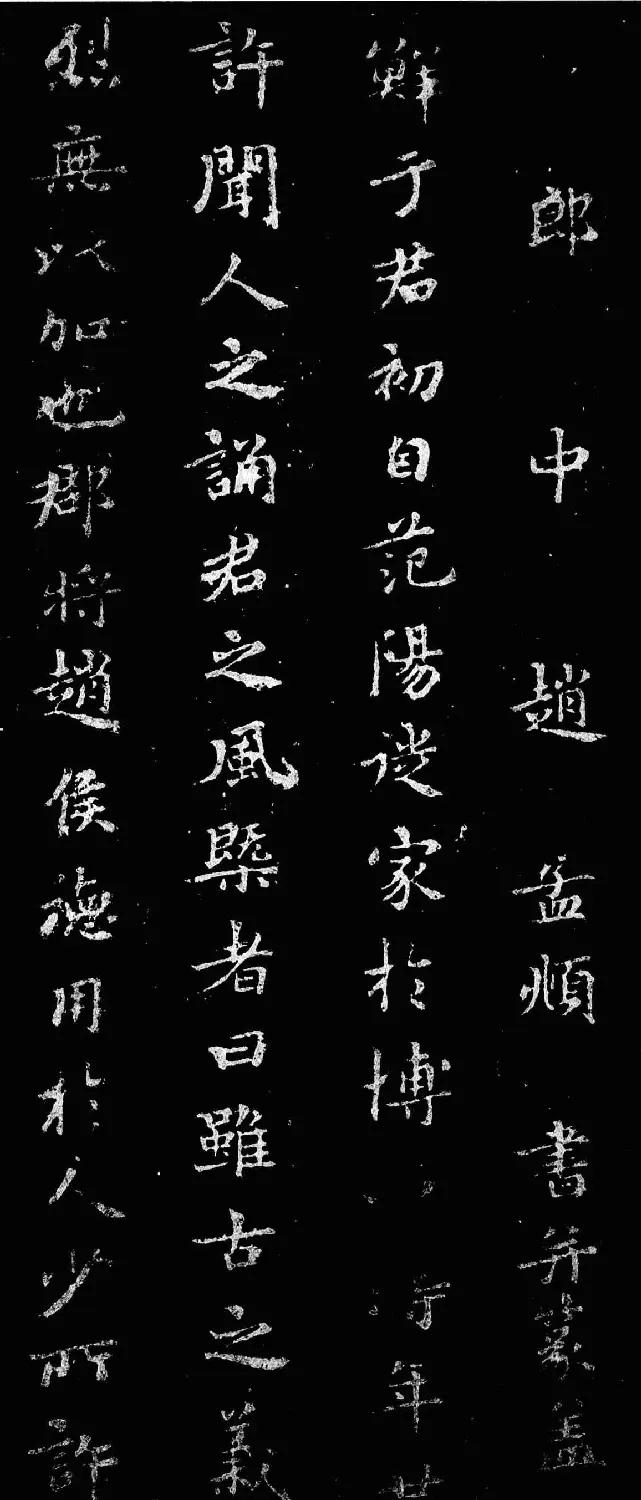 郎中趙孟頫書并篆蓋
鮮于君初自范陽徙家於博時年廿
許聞人之誦君之風槩者曰雖古之義
烈無以加也郡將趙侯德用於人少所許